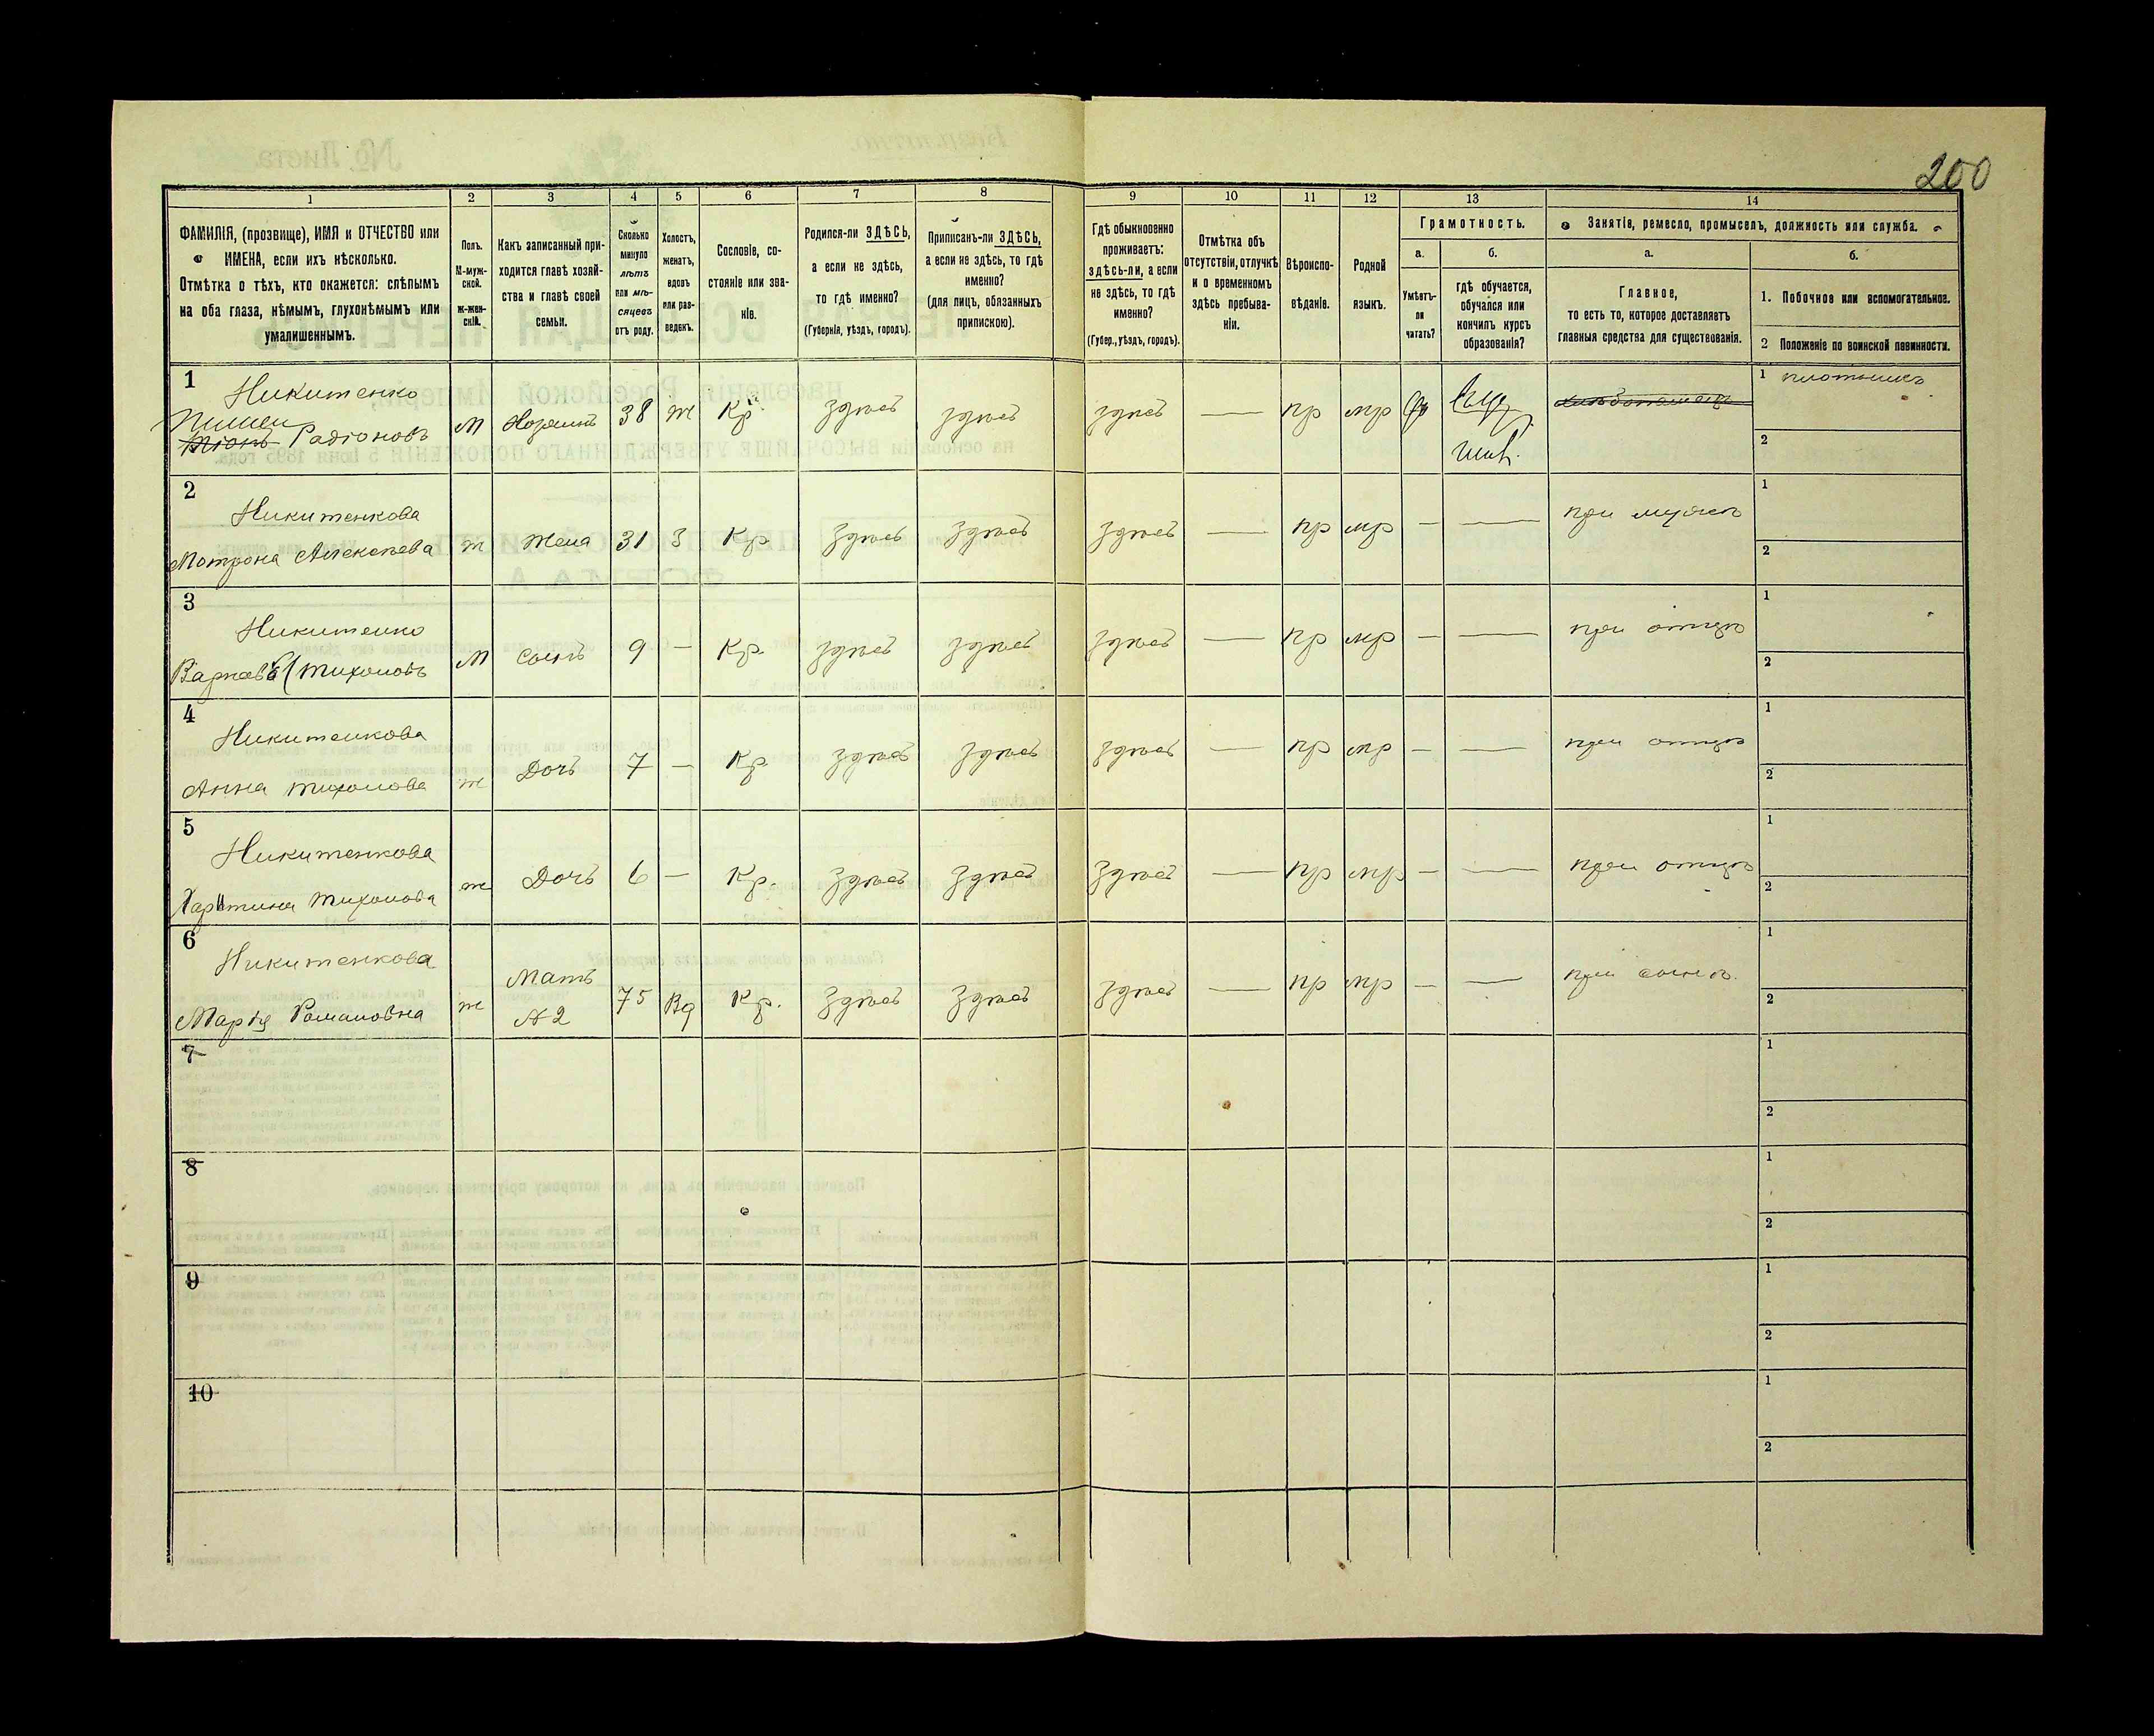 200
1
2
3
4
5
6
7
8
9
10
11
12
13
14
ФАМИЛІЯ, (прозвище), ИМЯ и ОТЧЕСТВО или
ИМЕНА, если ихъ нѣсколько.
Отмѣтка о тѣхъ, кто окажется: слѣпымъ
на оба глаза, нѣмымъ, глухонѣмымъ или
умалишеннымъ.
Полъ.
М-муж-
ской.
ж-жен-
скій.
Какъ записанный при-
ходится главѣ хозяй-
ства и главѣ своей
семьи.
Сколько
минуло
лѣтъ
или мѣ-
сяцевъ
отъ роду.
Холостъ,
женатъ,
вдовъ
или раз-
веденъ.
Сословіе, со-
стояніе или зва-
ніе.
Родился-ли ЗДѢСЬ,
а если не здѣсь,
то гдѣ именно?
(Губернія, уѣздъ, городъ).
Приписанъ-ли ЗДѢСЬ,
а если не здѣсь, то гдѣ
именно?
(для лицъ, обязанныхъ
припискою).
Гдѣ обыкновенно
проживаетъ:
здѣсь-ли, а если
не здѣсь, то гдѣ
именно?
(Губер., уѣздъ, городъ).
Отмѣтка объ
отсутствіи, отлучкѣ
и о временномъ
здѣсь пребыва-
ніи.
Вѣроиспо-
вѣданіе.
Родной
языкъ.
Грамотность.
а.
Умѣетъ-
ли
читать?
б.
гдѣ обучается,
обучался или
кончилъ курсъ
образованія?
Занятія, ремесло, промыселъ, должность или служба.
а.
Главное,
то есть то, которое доставляетъ
главныя средства для существованія.
б.
1. Побочное или вспомогательное.
2 Положеніе по воинской повинности.
1 Никитенко
Радіоновъ М 38 ж Кр здѣсь здѣсь здѣсь — пр мр
1 плотникъ
2
2 Никитенкова
Мотрона Алексѣева ж жена 31 З Кр здѣсь здѣсь здѣсь — пр мр — — при мужѣ
1
2
3 Никитенко
Тихоновъ М сынъ 9 — Кр. здѣсь здѣсь здѣсь — пр мр — — при отцѣ
1
2
4 Никитенкова
Анна Тихонова ж Дочь 7 — Кр здѣсь здѣсь здѣсь — пр мр — — при отцѣ
1
2
5 Никитенкова
Харитина Тихонова ж Дочь 6 — Кр. здѣсь здѣсь здѣсь — пр мр — — при отцѣ
1
2
6 Никитенкова
Марія Романовна ж Мать 75 Вд Кр. здѣсь здѣсь здѣсь — пр мр — — при сынѣ
1
2
7
1
2
8
1
2
9
1
2
10
1
2